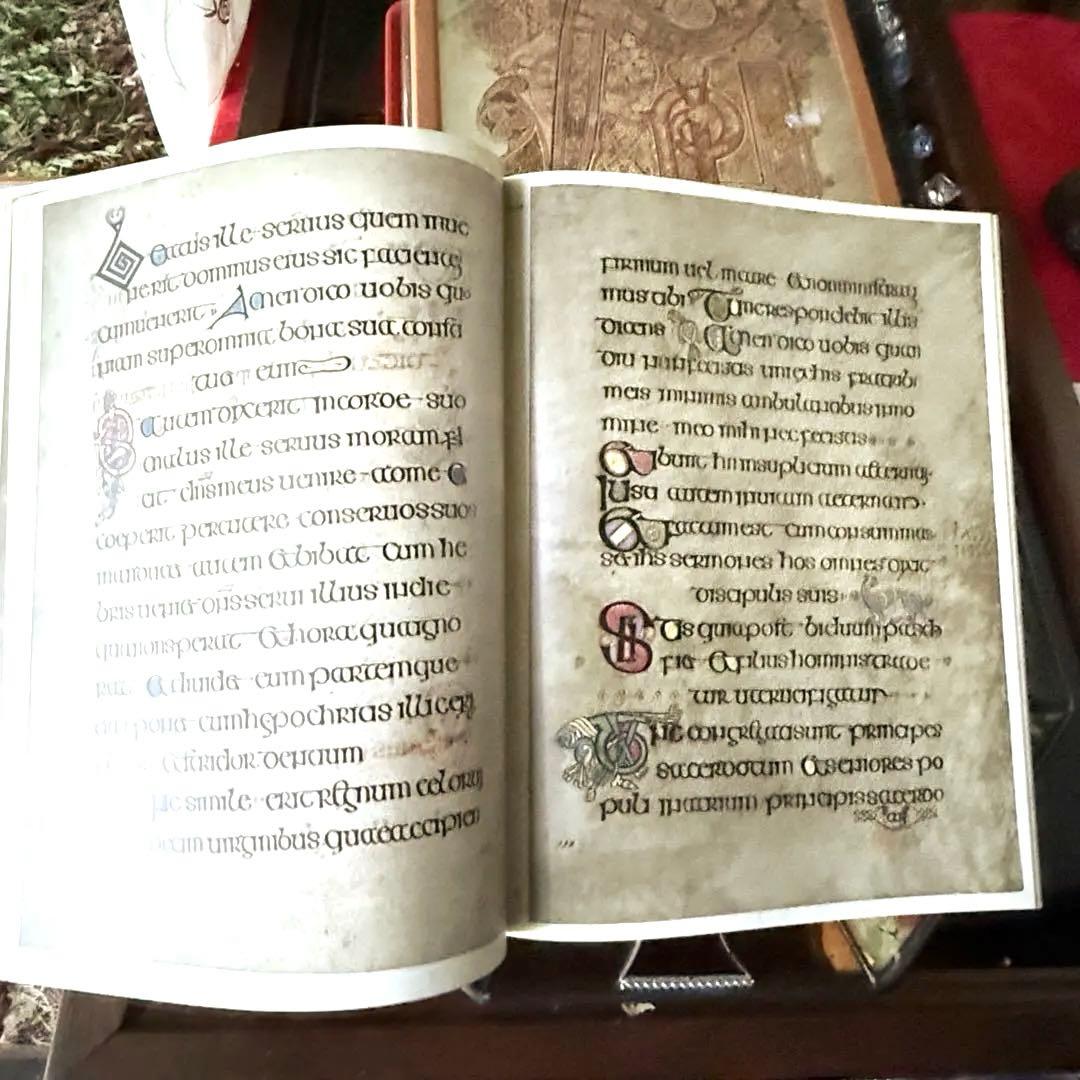 Beatus ille seruus quem inue
nerit dominus eius sic facientē
cum uenerit Amen dico uobis quo
niam super omnia bona sua consti
tuet eum
Si autem dixerit in corde suo
malus ille seruus moram
dn̄s meus uenire et
coeperit percutere conseruos suos
autem et bibat cum he
bris ueniet dn̄s serui illius in die
qua non sperat et hora qua igno
rat et diuidet eum partemque
ponet cum hypochritis illic erit
et stridor dentium
simile erit regnum celorum
decim uirginibus quae accipien
firmum uel in carcere et non
mus tibi Tunc respondebit illis
dicens Amen dico uobis quam
diu non fecistis fratrib;
meis minimis ambulantibus in no
mine meo mihi nec fecistis
Et ibunt hi in suplicium aeternum
Iusti autem in uitam aeternam
Et factum est cum consummas
set ihs sermones hos omnes dixit
discipulis suis
Scitis quia post biduum pasch
fiet et filius hominis trade
tur ut crucifigatur
Tunc congregati sunt principes
sacerdotum et seniores po
puli in atrium principis sacerdo